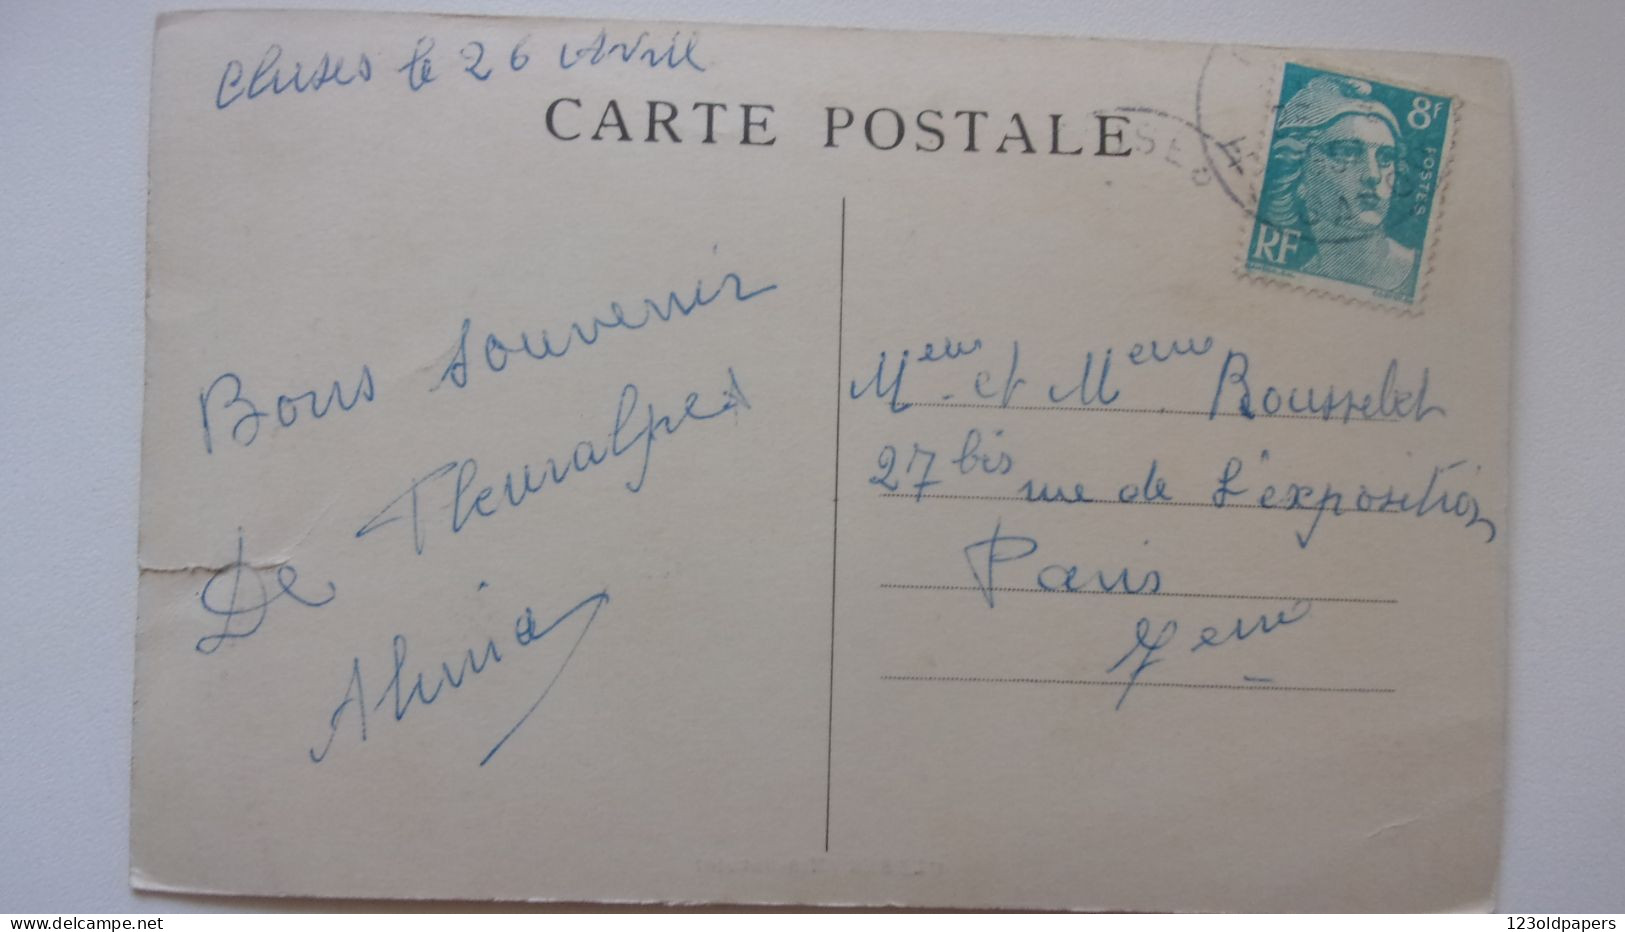 Cluses le 26 Avril
CARTE POSTALE
8f
POSTES
RF
Bons souvenir
De Fleuralpes
Meur et Meme Bousselet
27 bis rue de L'exposition
Paris
7eme
123oldpapers